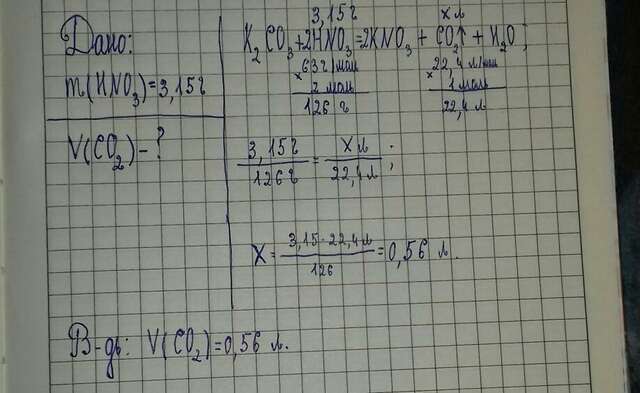 Дано:
m(HNO₃)=3,15г
V(CO₂)-?
3,15г
x л
K₂CO₃+2HNO₃=2KNO₃ + CO₂↑ + H₂O;
×63г/моль
2 моль
126 г
×22,4 л/моль
1 моль
22,4 л
3,15г/126г = x л/22,4 л;
x = 3,15·22,4 л/126 = 0,56 л.
В-дь: V(CO₂)=0,56 л.